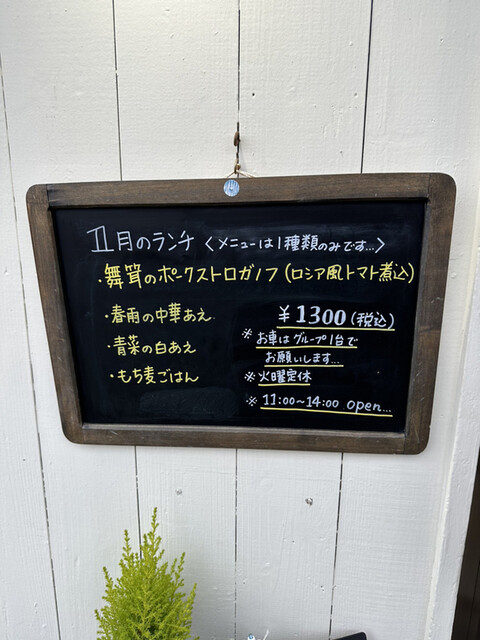 11月のランチ〈メニューは1種類のみです...〉
・舞茸のポークストロガノフ(ロシア風トマト煮込)
・春雨の中華あえ
・青菜の白あえ
・もち麦ごはん
¥1300(税込)
※お車はグループ1台で
お願いします...
※火曜定休
※11:00~14:00 open...